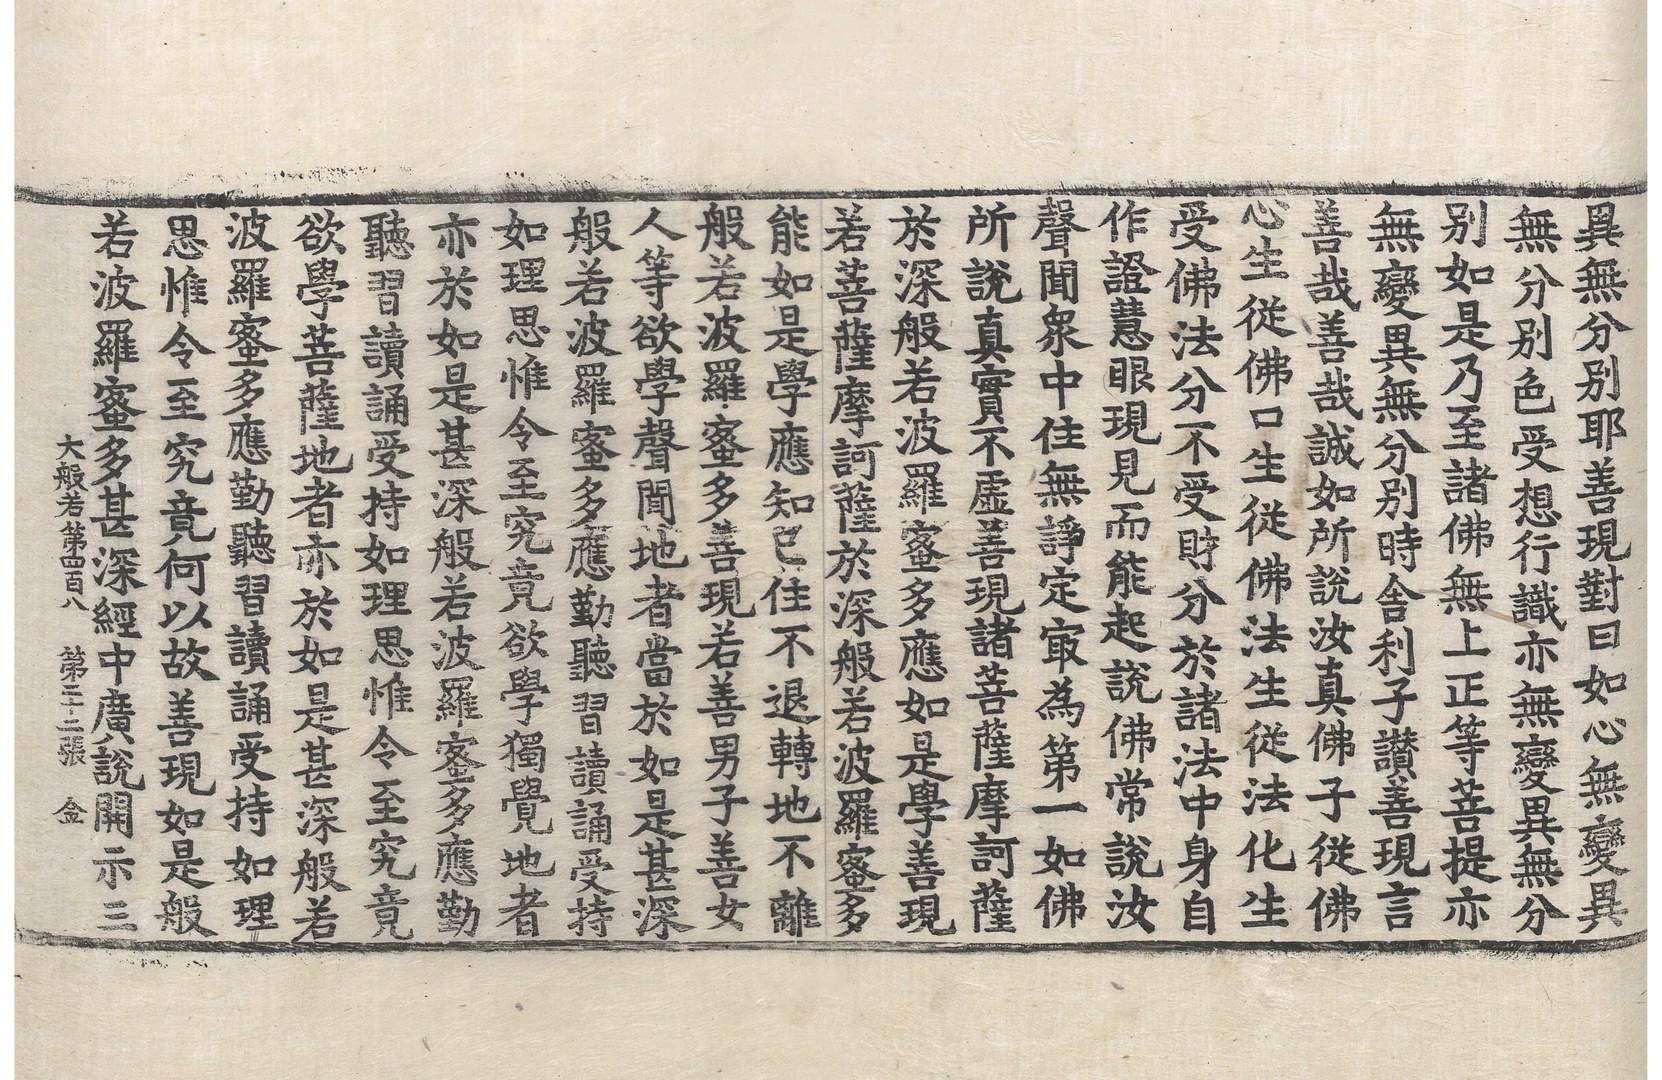 異無分别耶善現對曰如心無變異
無分别色受想行識亦無變異無分
别如是乃至諸佛無上正等菩提亦
無變異無分别時舍利子讚善現言
善哉善哉誠如所說汝真佛子從佛
心生從佛口生從佛法生從法化生
受佛法分不受財分於諸法中身自
作證慧眼現見而能起說佛常說汝
聲聞衆中住無諍定㝡為第一如佛
所說真實不虛善現諸菩薩摩訶薩
於深般若波羅蜜多應如是學善現
若菩薩摩訶薩於深般若波羅蜜多
能如是學應知已住不退轉地不離
般若波羅蜜多善現若善男子善女
人等欲學聲聞地者當於如是甚深
般若波羅蜜多應勤聽習讀誦受持
如理思惟令至究竟欲學獨覺地者
亦於如是甚深般若波羅蜜多應勤
聽習讀誦受持如理思惟令至究竟
欲學菩薩地者亦於如是甚深般若
波羅蜜多應勤聽習讀誦受持如理
思惟令至究竟何以故善現如是般
若波羅蜜多甚深經中廣說開示三
大般若第四百八 第二十二張 金